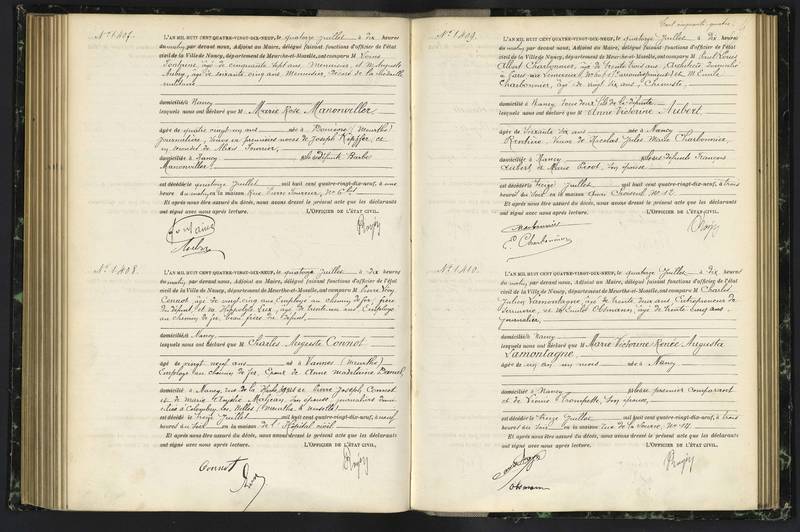 N° 1407.
L'AN MIL HUIT CENT QUATRE-VINGT-DIX-NEUF, le quatorze juillet à dix heures
du matin par devant nous, Adjoint au Maire, délégué faisant fonctions d'officier de l'état
civil de la Ville de Nancy, département de Meurthe-et-Moselle, ont comparu M Louis
Fontaine, âgé de cinquante sept ans, Menuisier, et
Aubry, âgé de soixante cinq ans Menuisier, décoré de la médaille
militaire
domiciliés à Nancy
lesquels nous ont déclaré que Marie Rose Manonviller
âgée de quatre vingt un ans née à (Meurthe)
journalière, veuve en premières noces de Joseph et
en secondes de
domiciliée à Nancy de défunte Barbe
Manonviller
est décédée le quatorze juillet mil huit cent quatre-vingt-dix-neuf, à une
heure du matin, en la maison rue Pierre Fourier, N° 6
Et après nous être assuré du décès, nous avons dressé le présent acte que les déclarants
ont signé avec nous après lecture. L'OFFICIER DE L'ÉTAT CIVIL.
Fontaine
Aubry
N° 1408.
L'AN MIL HUIT CENT QUATRE-VINGT-DIX-NEUF, le quatorze juillet à dix heures
du matin par devant nous, Adjoint au Maire, délégué faisant fonctions d'officier de l'état
civil de la Ville de Nancy, département de Meurthe-et-Moselle, ont comparu M Pierre
Connot âgé de vingt cinq ans Employé au chemin de fer, frère
du défunt, et Hippolyte Lux, âgé de trente ans Employé
au chemin de fer, beau frère du défunt
domiciliés à Nancy
lesquels nous ont déclaré que M Charles Auguste Connot
âgé de vingt neuf ans né à Vannes (Meurthe)
Employé au chemin de fer, époux de Anne Madeleine
domicilié à Nancy, rue de la fils de Pierre Joseph Connot
et de Marie son épouse, journaliers domi-
ciliés à Colombey les Belles (Meurthe & Moselle)
est décédé le treize juillet mil huit cent quatre-vingt-dix-neuf, à neuf
heures du soir en la maison de l'Hôpital civil
Et après nous être assuré du décès, nous avons dressé le présent acte que les déclarants
ont signé avec nous après lecture. L'OFFICIER DE L'ÉTAT CIVIL.
Connot
Lux
Cent cinquante quatre
N° 1409.
L'AN MIL HUIT CENT QUATRE-VINGT-DIX-NEUF, le quatorze juillet à dix heures
du matin par devant nous, Adjoint au Maire, délégué faisant fonctions d'officier de l'état
civil de la Ville de Nancy, département de Meurthe-et-Moselle, ont comparu M Paul Louis
Albert Charbonnier, âgé de trente ans, Architecte, domicilié
à Paris, rue et M. Emile
Charbonnier, âgé de vingt six ans, Chimiste,
domicilié à Nancy, tous deux fils de la défunte
lesquels nous ont déclaré que M Anne Victorine Aubert
âgée de soixante dix ans née à Nancy
Rentière, veuve de Nicolas Jules Marie Charbonnier,
domiciliée à Nancy fille de défunts François
Aubert et Marie Picot, son épouse
est décédée le treize juillet mil huit cent quatre-vingt-dix-neuf, à trois
heures du soir en la maison N° 12
Et après nous être assuré du décès, nous avons dressé le présent acte que les déclarants
ont signé avec nous après lecture. L'OFFICIER DE L'ÉTAT CIVIL.
Charbonnier
E. Charbonnier
N° 1410.
L'AN MIL HUIT CENT QUATRE-VINGT-DIX-NEUF, le quatorze juillet à dix heures
du matin par devant nous, Adjoint au Maire, délégué faisant fonctions d'officier de l'état
civil de la Ville de Nancy, département de Meurthe-et-Moselle, ont comparu M Charles
Julien Lamontagne, âgé de trente deux ans Entrepreneur de
serrurerie, et M Emile Obmann, âgé de trente cinq ans,
journalier
domiciliés à Nancy
lesquels nous ont déclaré que Marie Victorine Renée Augusta
Lamontagne,
âgée de un an un mois née à Nancy
domiciliée à Nancy fille du premier comparant
et de son épouse,
est décédée le treize juillet mil huit cent quatre-vingt-dix-neuf, à trois
heures du soir en la maison rue de la Source, N° 14
Et après nous être assuré du décès, nous avons dressé le présent acte que les déclarants
ont signé avec nous après lecture. L'OFFICIER DE L'ÉTAT CIVIL.
Obmann